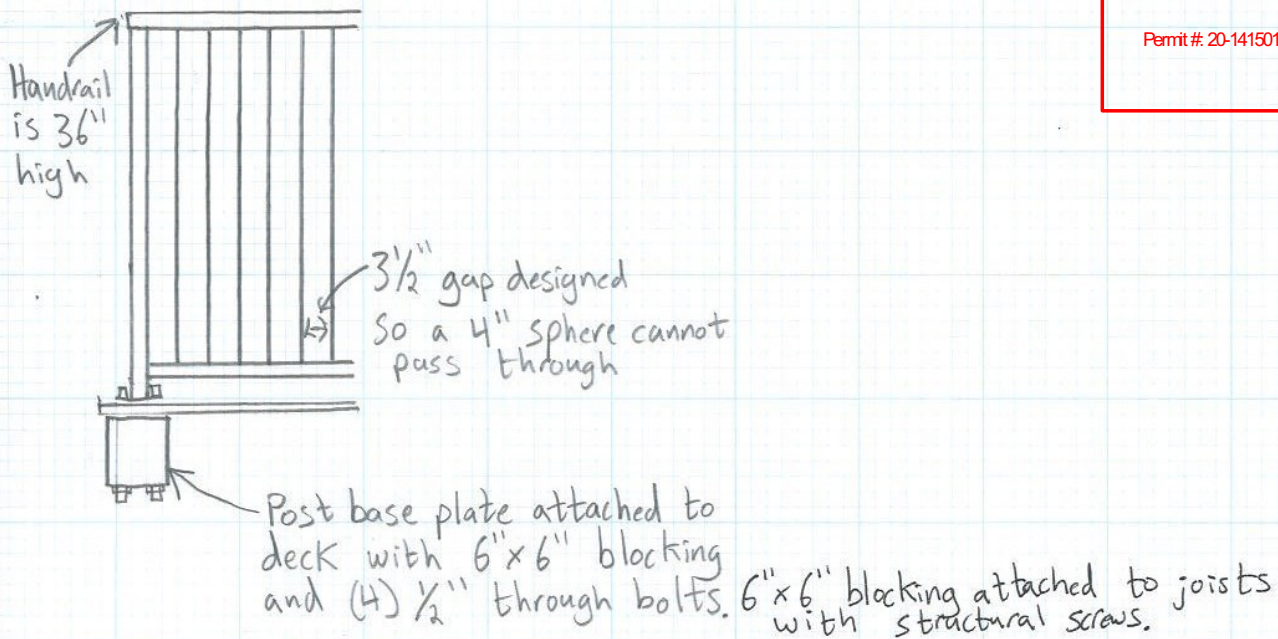 Permit #: 20-141501
Handrail
is 36"
high
3½" gap designed
so a 4" sphere cannot
pass through
Post base plate attached to
deck with 6"x6" blocking
and (4) ½" through bolts.
6"x6" blocking attached to joists
with structural screws.